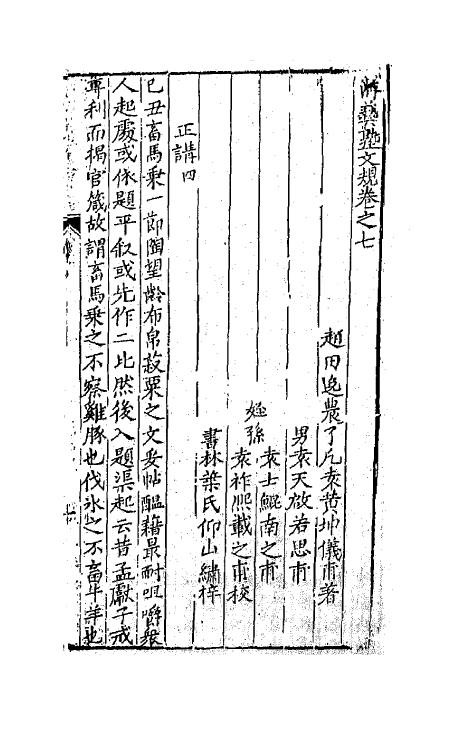 游藝塾文規卷之七
趙田逸農了凡袁黃坤儀甫著
男袁天啟若思甫
姪孫
袁士鯤南之甫
袁祚熙載之甫校
書林葉氏仰山繡梓
正講四
己丑畜馬乘一節陶望齡布帛菽粟之文妥帖醞藉最耐咀嚼衆
人起處或依題平叙或先作二比然後入題渠起云昔孟獻子戒
專利而揭官箴故謂畜馬乘之不察雞豚也伐氷之不畜牛羊也